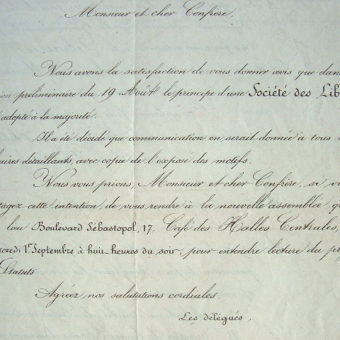 Monsieur et cher Confrère,
Nous avons la satisfaction de vous donner avis que dans
ion préliminaire du 19 Août le principe d'une Société des Lib
adopté à la majorité.
Il a été décidé que communication en serait donnée à tous
aires détaillants, avec copie de l'exposé des motifs.
Nous vous prions, Monsieur et cher Confrère, si v
tagez cette intention de vous rendre à la nouvelle assemblée q
lieu Boulevard Sébastopol, 17. Café des Halles Centrales,
credi 1er Septembre à huit heures du soir, pour entendre lecture du pr
Statuts
Agréez nos salutations cordiales.
Les délégués,